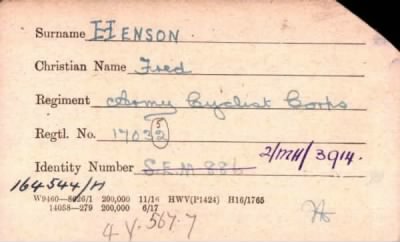 Surname HENSON
Christian Name Fred
Regiment Army Cyclist Corps
5
Regtl. No. 17032
2/MH/3914.
Identity Number S.E.M 886
164544/H
W9460—8026/1 200,000 11/16 HWV(P1424) H16/1765
14058—279 200,000 6/17
4 V. 567.7